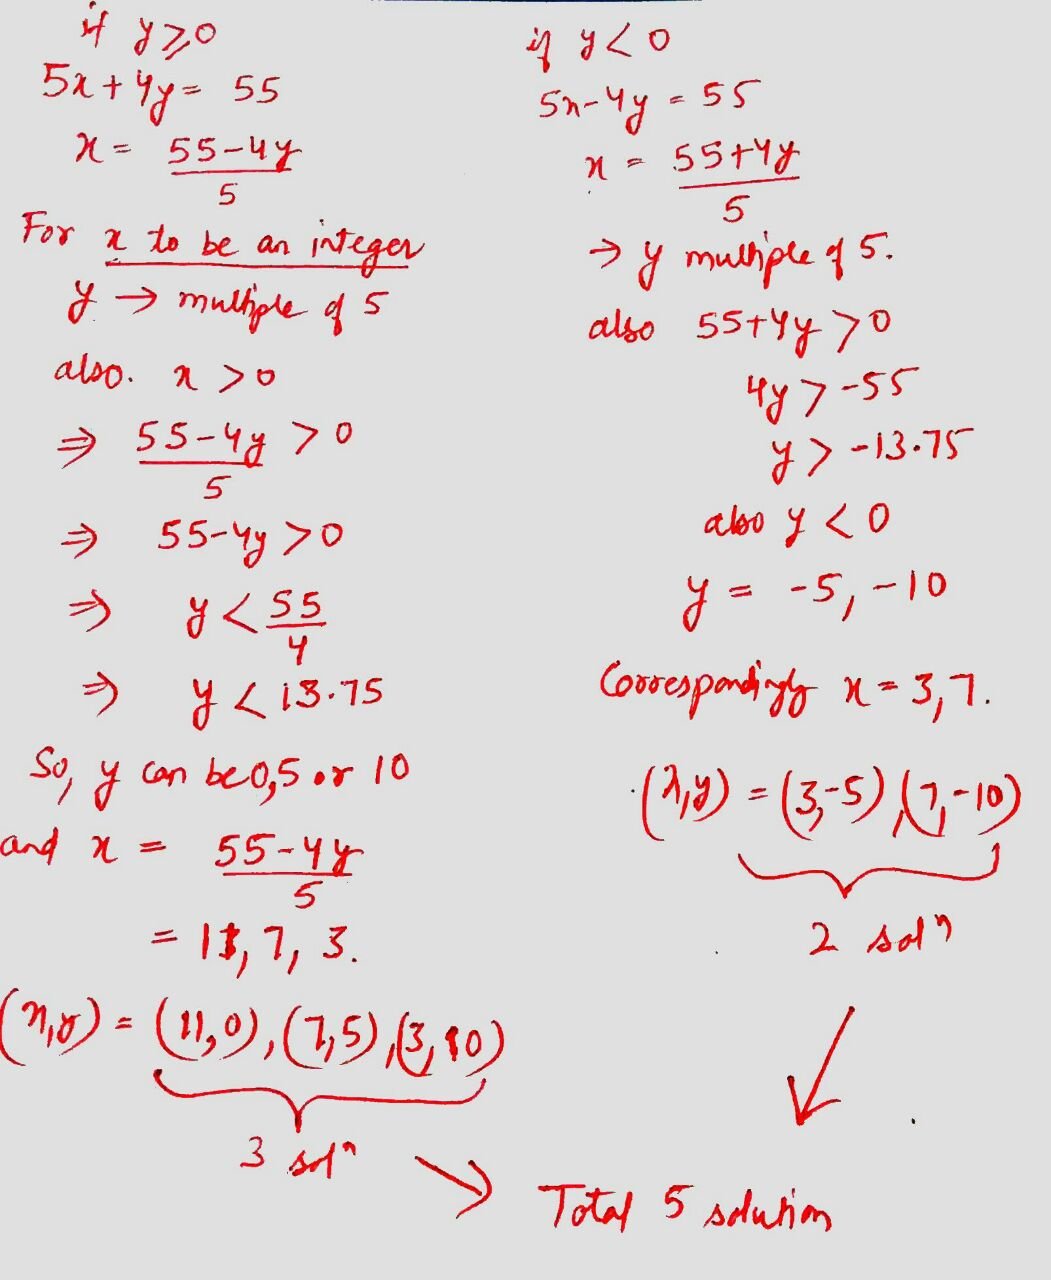 if y ≥ 0
5x + 4y = 55
x = 55-4y / 5
For x to be an integer
y → multiple of 5
also. x > 0
⇒ 55-4y / 5 > 0
⇒ 55-4y > 0
⇒ y < 55/4
⇒ y < 13.75
So, y can be 0,5 or 10
and x = 55-4y / 5
= 11, 7, 3.
(x,y) = (11,0), (7,5), (3,10)
3 solⁿ
if y < 0
5x-4y = 55
x = 55+4y / 5
⇒ y multiple of 5.
also 55+4y > 0
4y > -55
y > -13.75
also y < 0
y = -5, -10
Correspondingly x = 3, 7.
(x,y) = (3,-5), (7,-10)
2 solⁿ
Total 5 solution